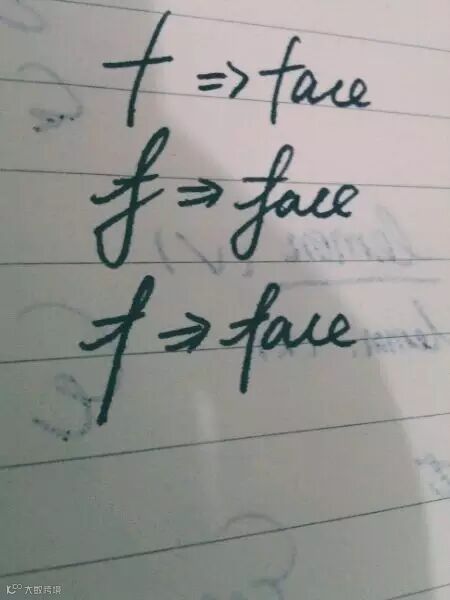 f ⇒ face
f ⇒ face
f ⇒ face
大数跨境